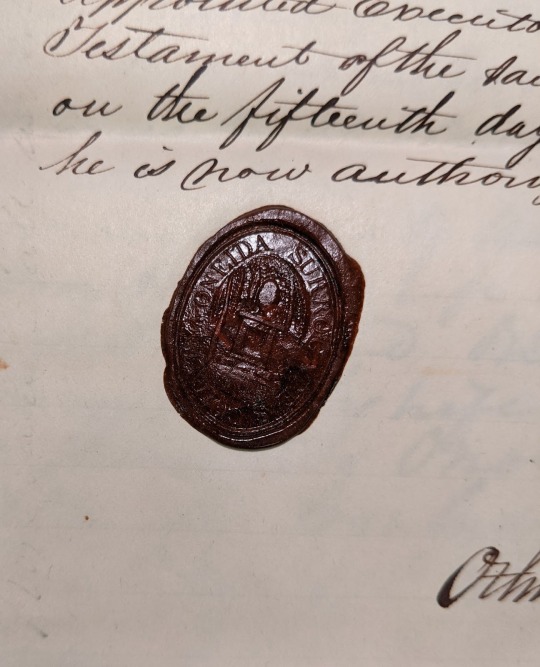 appointed Executo
Testament of the sa
on the fifteenth day
he is now author
ONEIDA SURRO
Oth